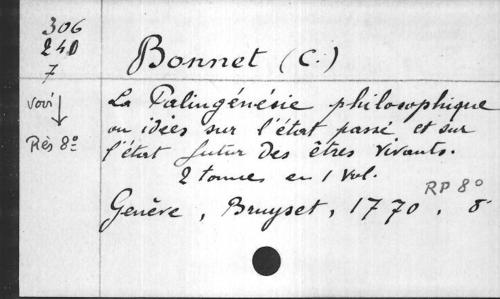 306
240
7
Bonnet (C.)
voir
Rés 8º
La Palingénésie philosophique
ou idées sur l'état passé et sur
l'état futur des êtres vivants.
2 tomes en 1 vol.
RP 8º
Genève, Bruyset, 1770. 8º